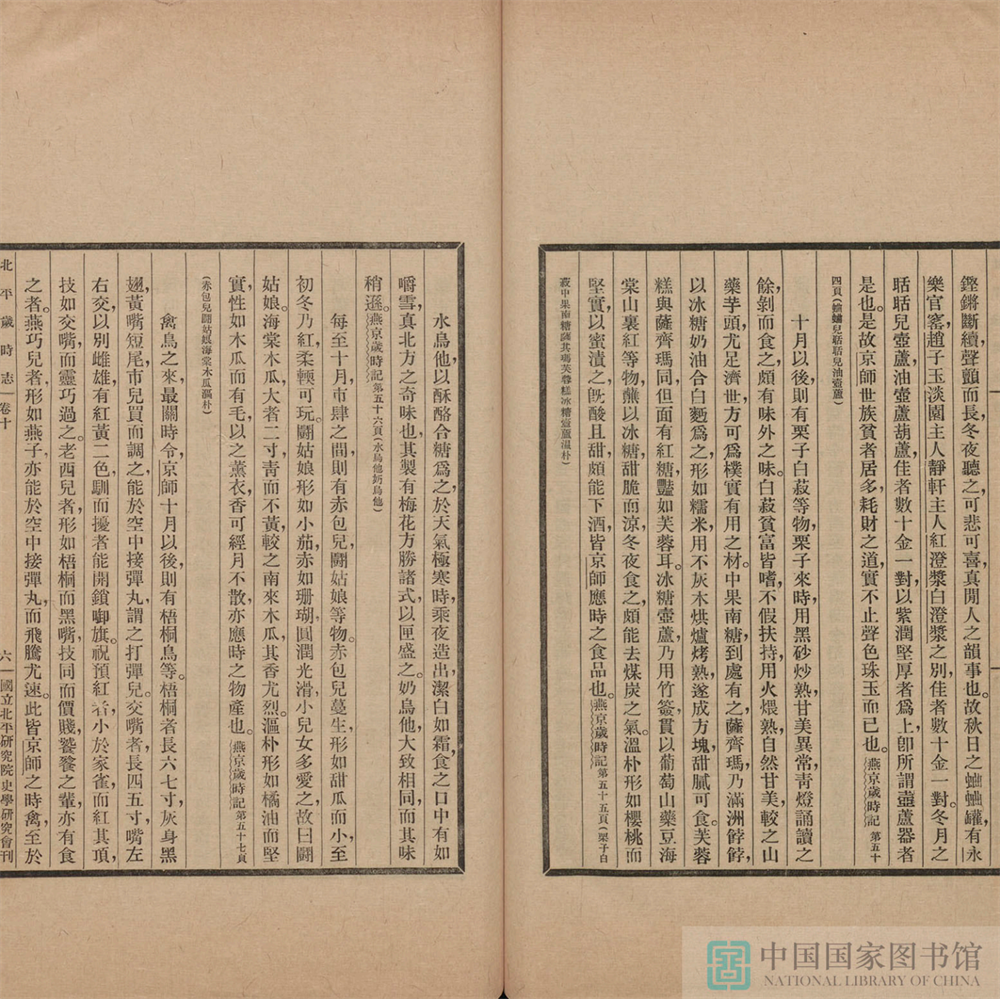 鏗鏘斷續聲顫而長冬夜聽之可悲可喜真閒人之韻事也。故秋日之蛐蛐罐有永
樂官窰趙子玉淡園主人靜軒主人紅澄漿白澄漿之別佳者數十金一對。冬月之
聒聒兒壺蘆油壺蘆葫蘆佳者數十金一對以紫潤堅厚者爲上卽所謂壺蘆器者
是也。是故京師世族貧者居多耗財之道實不止聲色珠玉而已也。燕京歲時記第五十
四頁(蛐蛐兒聒聒兒油壺蘆)
十月以後則有栗子白菽等物栗子來時用黑砂炒熟甘美異常青燈誦讀之
餘剝而食之頗有味外之味。白菽貧富皆嗜不假扶持用火煨熟自然甘美較之山
藥芋頭尤足濟世方可爲樸實有用之材。中果南糖到處有之薩齊瑪乃滿洲餑餑,
以冰糖奶油合白麪爲之形如糯米用不灰木烘爐烤熟遂成方塊甜膩可食芙蓉
糕與薩齊瑪同但面有紅糖豔如芙蓉耳。冰糖壺蘆乃用竹簽貫以葡萄山藥豆海
棠山裏紅等物蘸以冰糖甜脆而涼冬夜食之頗能去煤炭之氣。溫朴形如櫻桃而
堅實以蜜漬之旣酸且甜頗能下酒皆京師應時之食品也。燕京歲時記第五十五頁(栗子白
菽中果南糖薩其瑪芙蓉糕冰糖壺蘆溫朴)
水烏他以酥酪合糖爲之於天氣極寒時乘夜造出潔白如霜食之口中有如
嚼雪真北方之奇味也其製有梅花方勝諸式以匣盛之。奶烏他大致相同而其味
稍遜。燕京歲時記第五十六頁(水烏他奶烏他)
每至十月市肆之間則有赤包兒鬭姑娘等物。赤包兒蔓生形如甜瓜而小至
初冬乃紅柔輭可玩。鬭姑娘形如小茄赤如珊瑚圓潤光滑小兒女多愛之故曰鬭
姑娘。海棠木瓜大者二寸青而不黃較之南來木瓜其香尤烈。漚朴形如橘油而堅
實性如木瓜而有毛以之薰衣香可經月不散亦應時之物產也。燕京歲時記第五十七頁
(赤包兒鬭姑娘海棠木瓜漚朴)
禽鳥之來最關時令京師十月以後則有梧桐鳥等。梧桐者長六七寸灰身黑
翅黃嘴短尾市兒買而調之能於空中接彈丸謂之打彈兒。交嘴者長四五寸嘴左
右交以別雌雄有紅黃二色馴而擾者能開鎖啣旗。祝預紅者小於家雀而紅其頂,
技如交嘴而靈巧過之。老西兒者形如梧桐而黑嘴技同而價賤饕餮之輩亦有食
之者。燕巧兒者形如燕子亦能於空中接彈丸而飛騰尤速。此皆京師之時禽至於
北平歲時志 卷十 六 國立北平研究院史學研究會刊
中国国家图书馆
NATIONAL LIBRARY OF CHINA